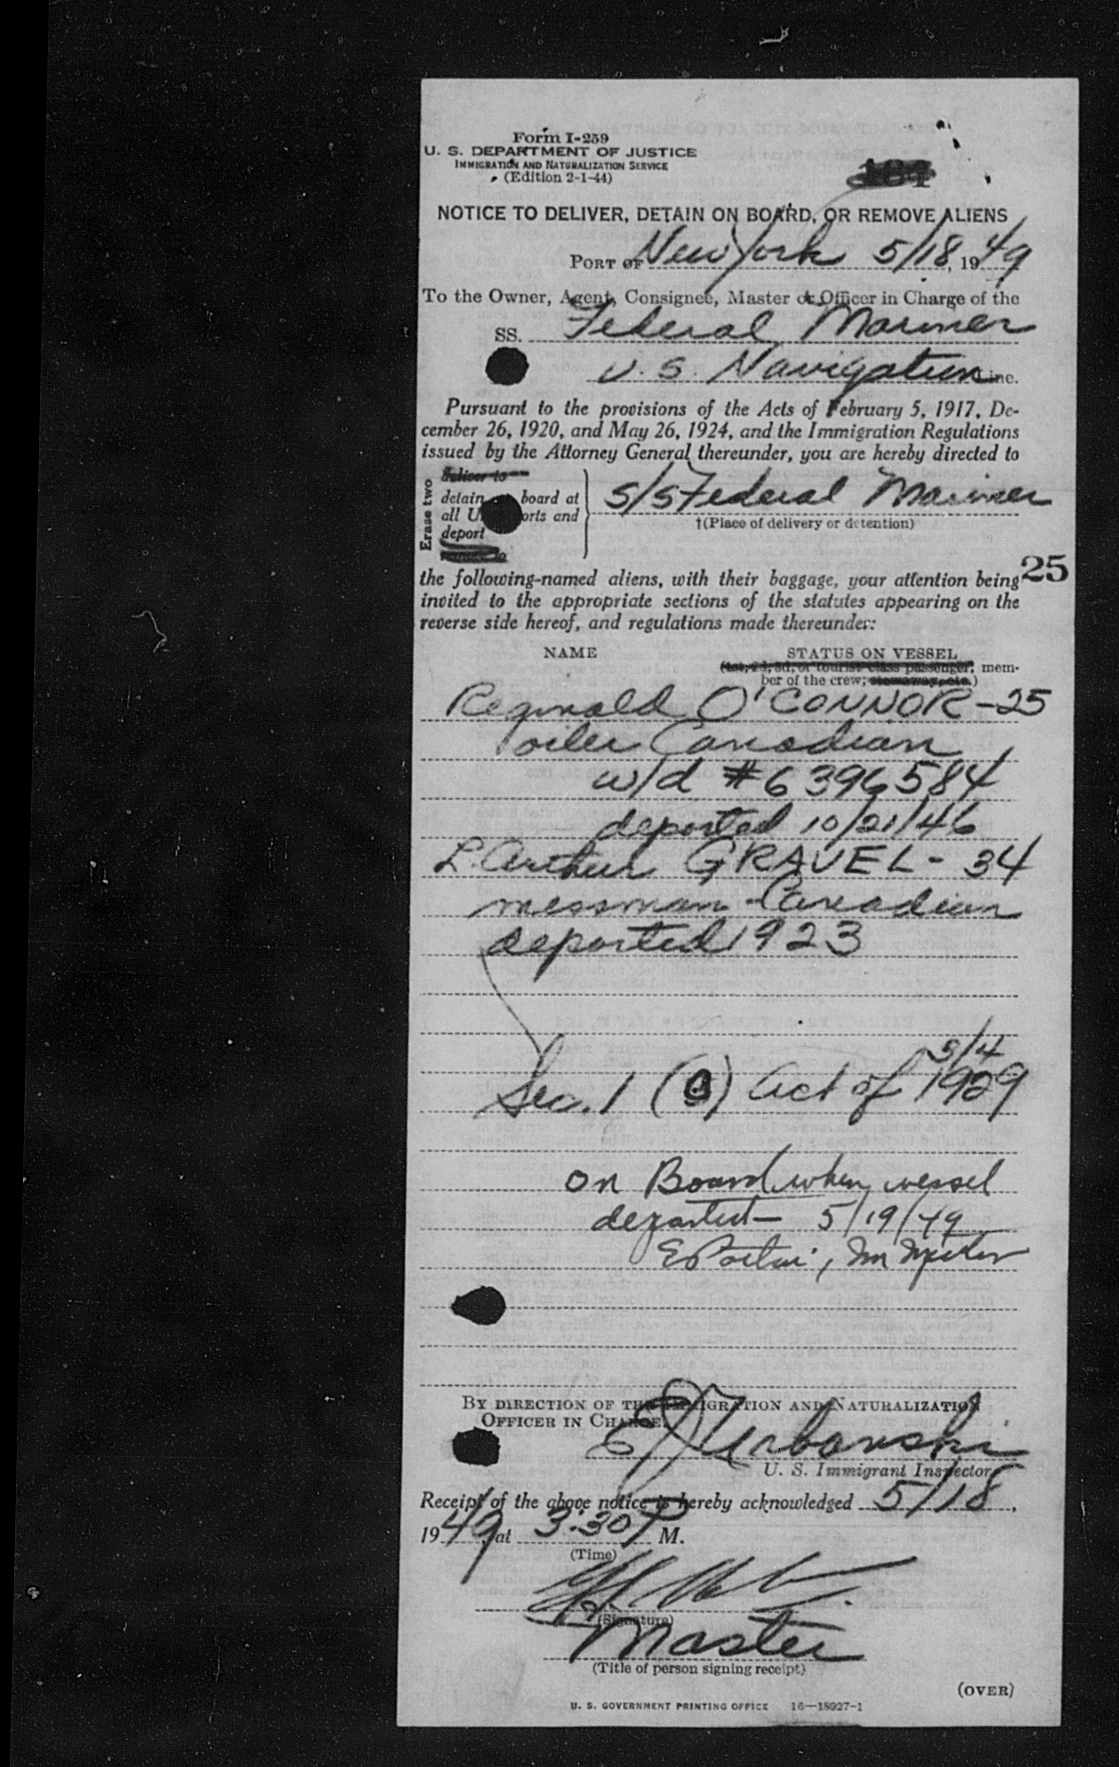 Form I-259
U. S. DEPARTMENT OF JUSTICE
IMMIGRATION AND NATURALIZATION SERVICE
(Edition 2-1-44)
184
NOTICE TO DELIVER, DETAIN ON BOARD, OR REMOVE ALIENS
PORT OF New York 5/18, 1949
To the Owner, Agent, Consignee, Master or Officer in Charge of the
SS. Federal Mariner
U.S. Navigation Line.
Pursuant to the provisions of the Acts of February 5, 1917, De-
cember 26, 1920, and May 26, 1924, and the Immigration Regulations
issued by the Attorney General thereunder, you are hereby directed to
Erase two
deliver to
detain board at
all U orts and
deport
S/S Federal Mariner
†(Place of delivery or detention)
25
the following-named aliens, with their baggage, your attention being
invited to the appropriate sections of the statutes appearing on the
reverse side hereof, and regulations made thereunder:
NAME STATUS ON VESSEL
(1st, 2d, 3d, or tourist class passenger; mem-
ber of the crew; stowaway, etc.)
Reginald O'CONNOR - 25
oiler Canadian
w/d #6396584
deported 10/21/46
L. Arthur GRAVEL - 34
messman - Canadian
deported 1923
5/4
Sec. 1 ( ) Act of 1929
on Board when vessel
departed - 5/19/49
BY DIRECTION OF THE IMMIGRATION AND NATURALIZATION
OFFICER IN CHARGE.
E J Urbanski
U. S. Immigrant Inspector
Receipt of the above notice is hereby acknowledged 5/18,
1949 at 3:30 P M.
(Time)
(Signature)
Master
(Title of person signing receipt)
(OVER)
U. S. GOVERNMENT PRINTING OFFICE 16—18927-1